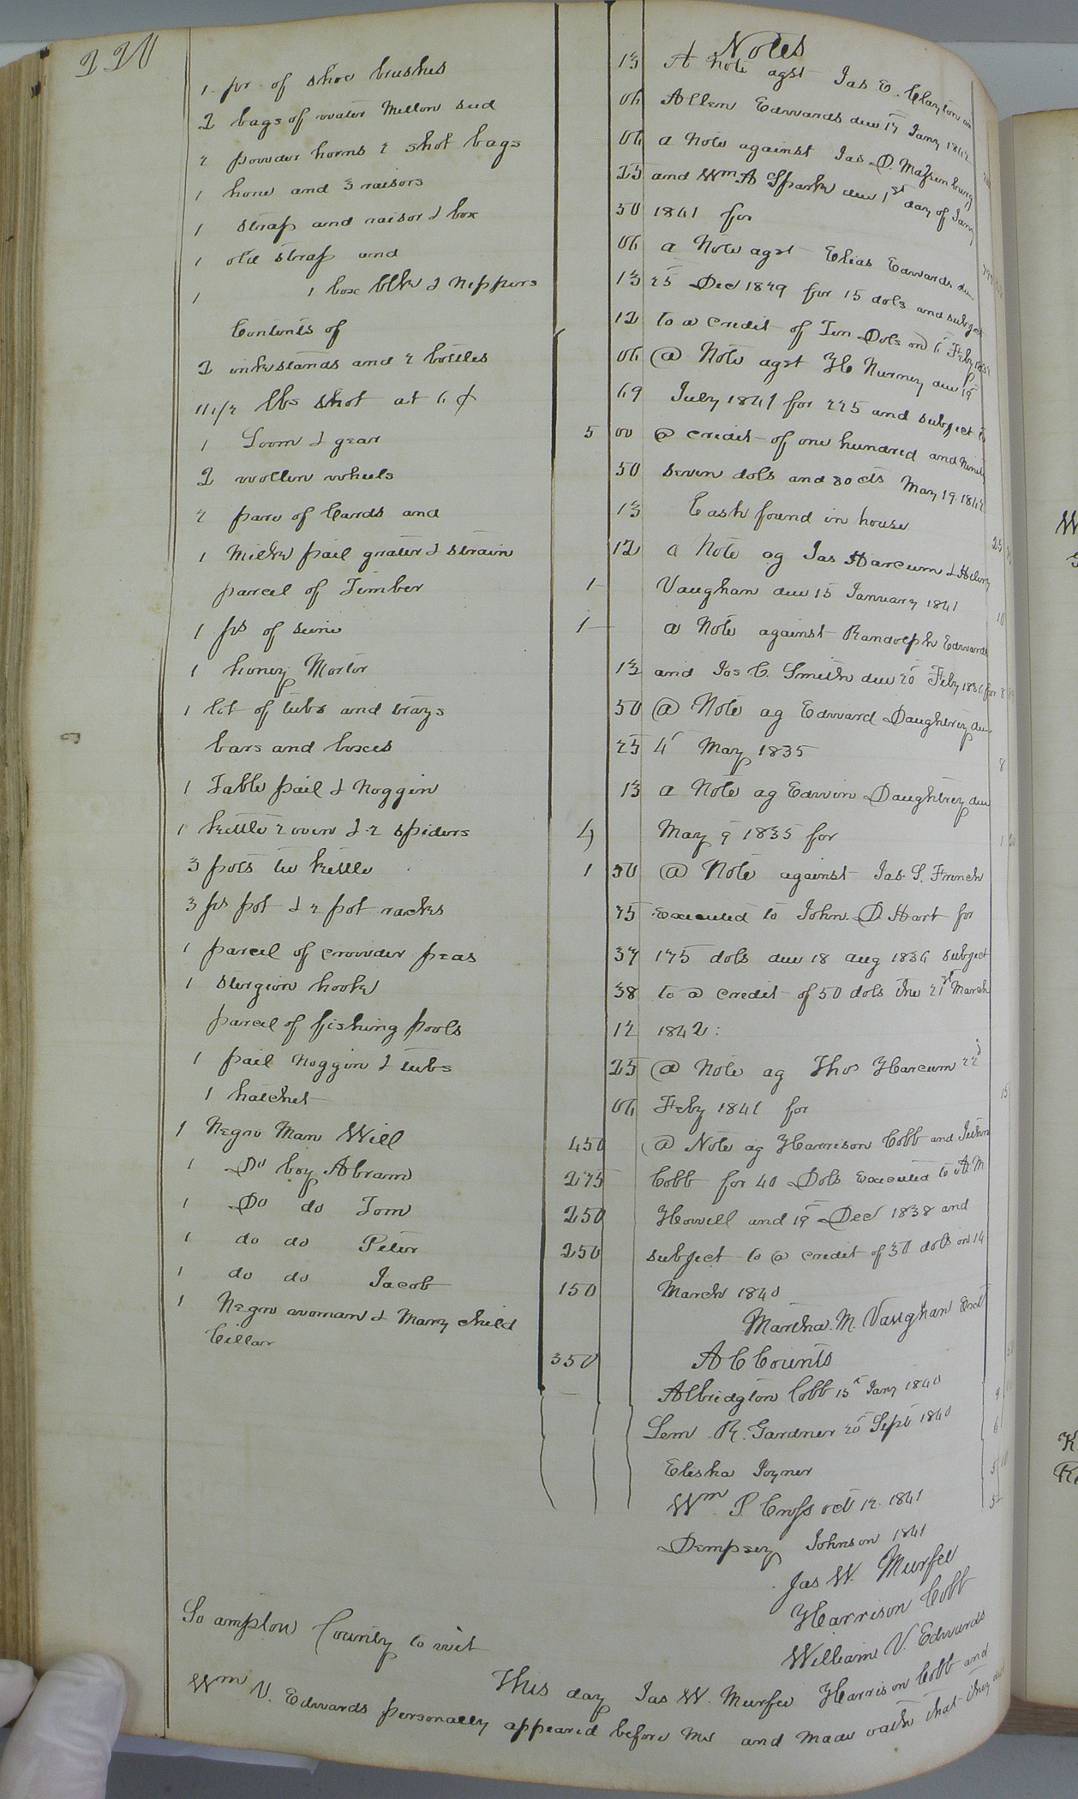 220
1 pr of shoe brushes 13
2 bags of water Mellon seed 06
2 powder horns 2 shot bags 06
1 hone and 3 raisors 25
1 strap and raisor & box 50
1 old strap and 06
1 1 box blk & Nippers 13
Contents of 12
2 inkstands and 2 bottles 06
11 1/2 lbs shot at 6 ¢ 69
1 Loom & gear 5 00
2 woollen wheels 50
2 pare of Cards and 13
1 Milk pail grater & strain 12
parcel of Timber 1
1 ps of seine 1
1 honey Mortor 12
1 lot of tubs and trays 50
bars and boxes 25
1 Table pail & Noggin 13
1 kettle 2 oven & 2 spiders 4
3 pots tea kettle 1 50
3 ps pot & 2 pot rackes 75
1 parcel of crowder peas 37
1 sturgion hooke 38
parcel of fishing pools 12
1 pail Noggin & tubs 25
1 hatchet 06
1 Negro Man Will 450
1 Do boy Abram 275
1 Do do Tom 250
1 do do Peter 250
1 do do Jacob 150
1 Negro woman & Mary child
Cillar 350
Notes
A note agst Jas E. Clayton
Allen Edwards due 17 Jany 1842
a Note against Jas D.
and Wm A Spark due 1st day of Jany
1841 for
a Note agst Elias Edwards due
25 Dec 1829 for 15 dols and subject
to a credit of Ten Dols on 6 Feby
a Note agst H Nurney due 19
July 1841 for 225 and subject to
a credit of one hundred and Ninety
seven dols and 80 cts May 19 1842
Cash found in house 25
a Note ag Jas Harcum &
Vaughan due 15 January 1841 10
a Note against Randolph Edwards
and Jos C. Smith due 20 Feby 1836 for 8
a Note ag Edward Daughtrey due
4 May 1835 8
a Note ag Edwin Daughtrey due
May 9 1835 for 1
a Note against Jas S. French
executed to John D Hart for
175 dols due 18 aug 1836 subject
to a credit of 50 dols the 21st March
1842:
a Note ag Thos Harcum 22d
Feby 1841 for 15
a Note ag Harrison Cobb and
Cobb for 40 Dols executed to A M
Howell and 19 Dec 1838 and
subject to a credit of 30 dols on 14
March 1840
Martha M. Vaughan
ACCounts
Albridgton Cobb 15 Jany 1840 9
Lem R. Gardner 20 Sept 1840 6
Elisha Joyner 5
Wm P. Cross oct 12 1841
Dempsey Johnson 1841
Jas W. Murfee
Harrison Cobb
William V. Edwards
So ampton County to wit
This day Jas W. Murfee Harrison Cobb and
Wm V. Edwards personally appeared before me and made oath that they